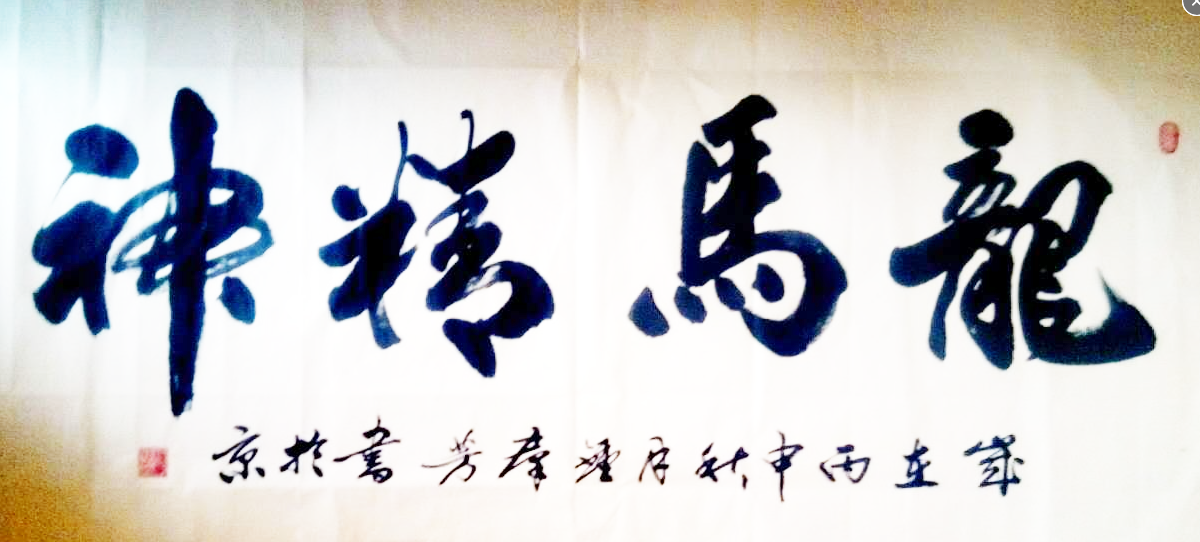 龍馬精神
歲在丙申秋月芳書於京